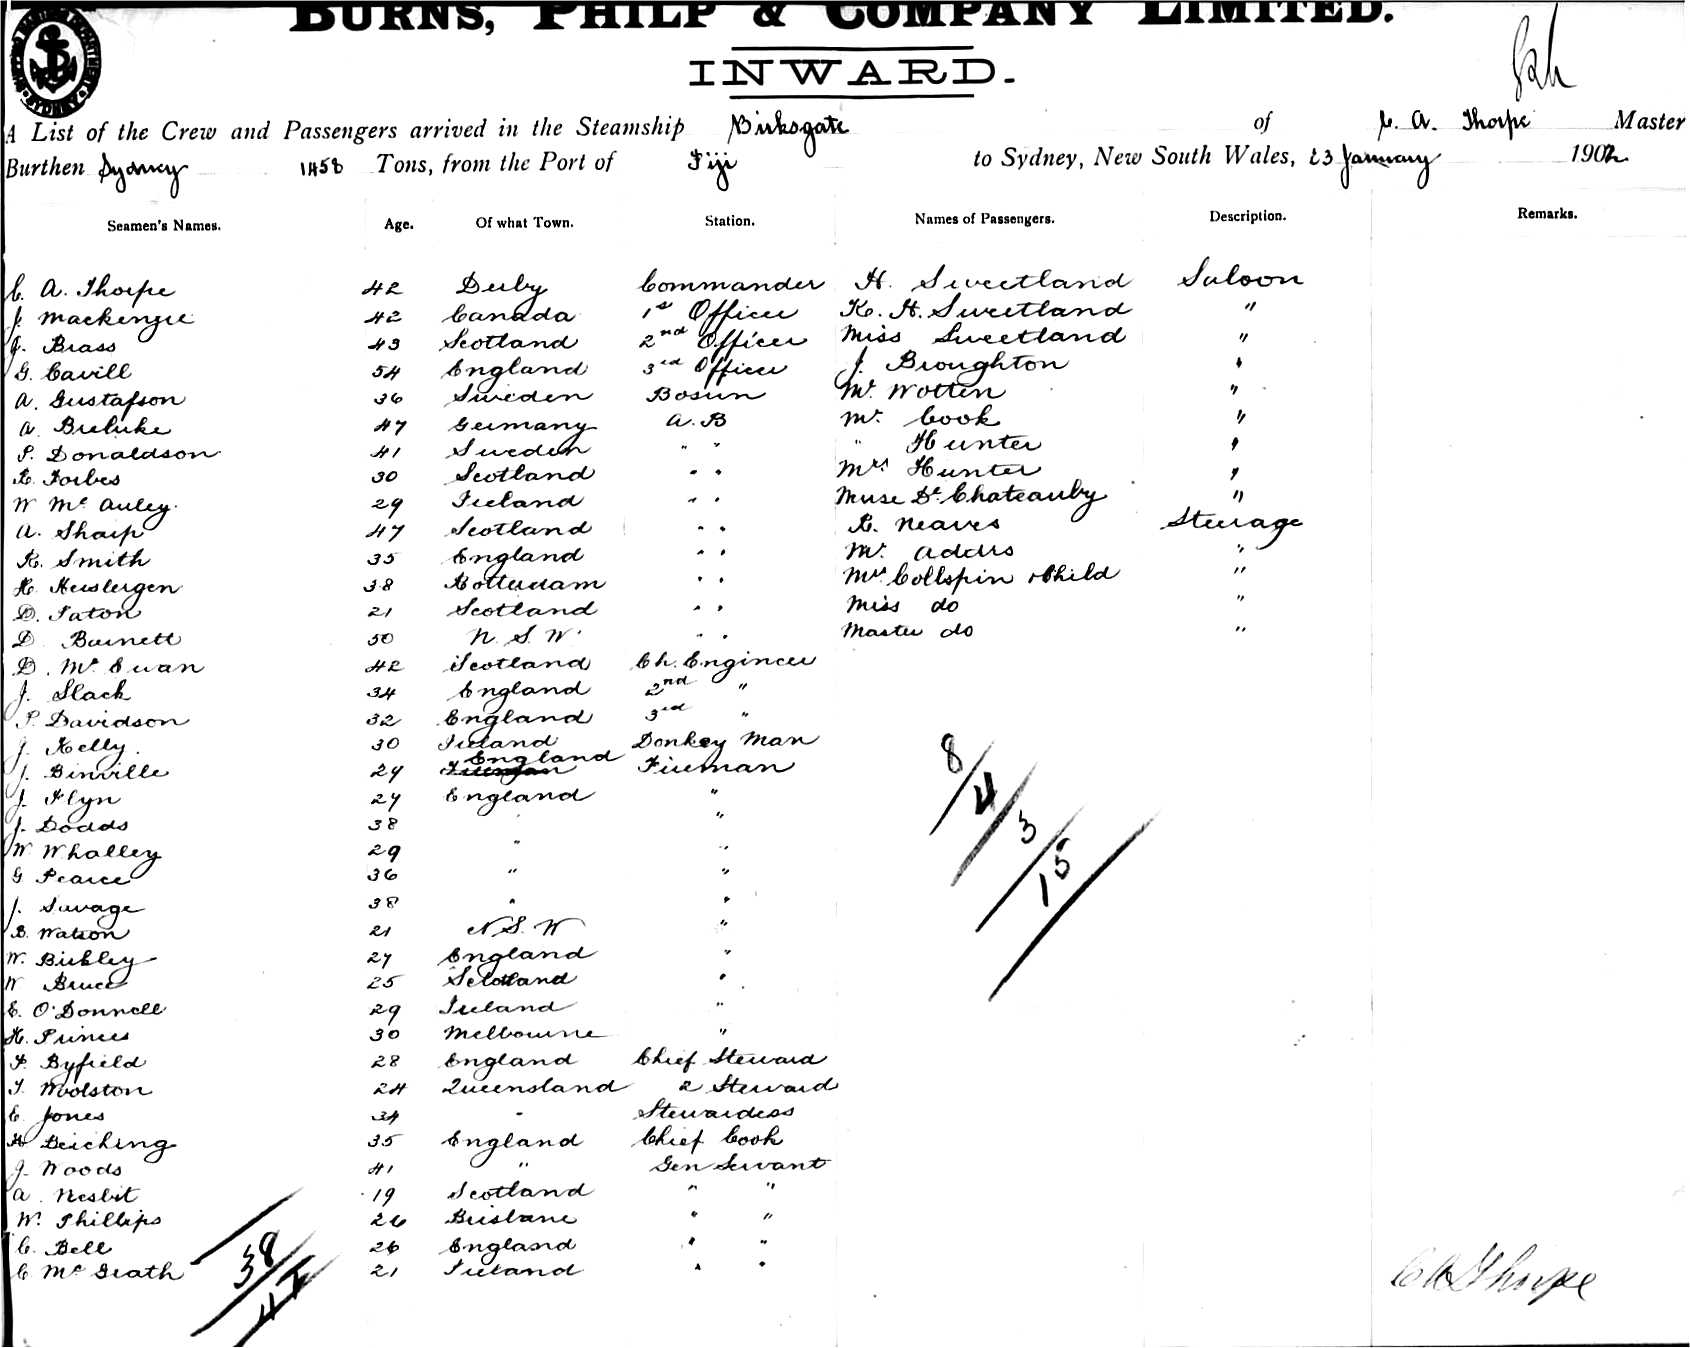 BURNS, PHILP & COMPANY LIMITED.
INWARD.
SYDNEY
A List of the Crew and Passengers arrived in the Steamship Birksgate of C. A. Thorpe Master
Burthen Sydney 1458 Tons, from the Port of Fiji to Sydney, New South Wales, 23 January 1902
Seamen's Names. Age. Of what Town. Station. Names of Passengers. Description. Remarks.
C. A. Thorpe 42 Derby Commander H. Sweetland Saloon
J. Mackenzie 42 Canada 1st Officer K. H. Sweetland "
J. Brass 43 Scotland 2nd Officer Miss Sweetland "
G. Cavill 54 England 3rd Officer J. Broughton "
A. Gustafson 36 Sweden Bosun Mr. Wotten "
A. 47 Germany A.B Mr. Cook "
P. Donaldson 41 Sweden " " " Hunter "
R. Forbes 30 Scotland " " Mrs Hunter "
W McAuley. 29 Ireland " " Muse De Chateauby "
A. Sharp 47 Scotland " " R. Neaves Steerage
R. Smith 35 England " " Mr. Addis "
H. Heislergen 38 Rotterdam " " Mrs Collspin & Child "
D. Paton 21 Scotland " " Miss do "
D. Burnett 50 N. S. W. " " Master do "
D. McEwan 42 Scotland Ch. Engineer
J. Slack 34 England 2nd "
P. Davidson 32 England 3rd "
J. Kelly. 30 Ireland Donkey Man
J. Binville 24 England Fireman
J. Flyn 27 England "
J. Dodds 38 "
W Whalley 29 " "
G Pearce 36 " "
J. Savage 38 " "
B. Watson 21 N S. W "
W. Bickley 27 England "
W Bruce 25 Scotland "
E. O'Donnell 29 Ireland "
H. Princes 30 Melbourne "
F. Byfield 28 England Chief Steward
T. Woolston 24 Queensland 2 Steward
E. Jones 34 " Stewardess
H Beiching 35 England Chief Cook
J. Woods 41 " Gen Servant
A. Nesbit 19 Scotland " "
W. Phillips 26 Brisbane " "
C. Bell 26 England " "
C McGrath 21 Ireland " "
8/4/3/15
38/
C A Thorpe